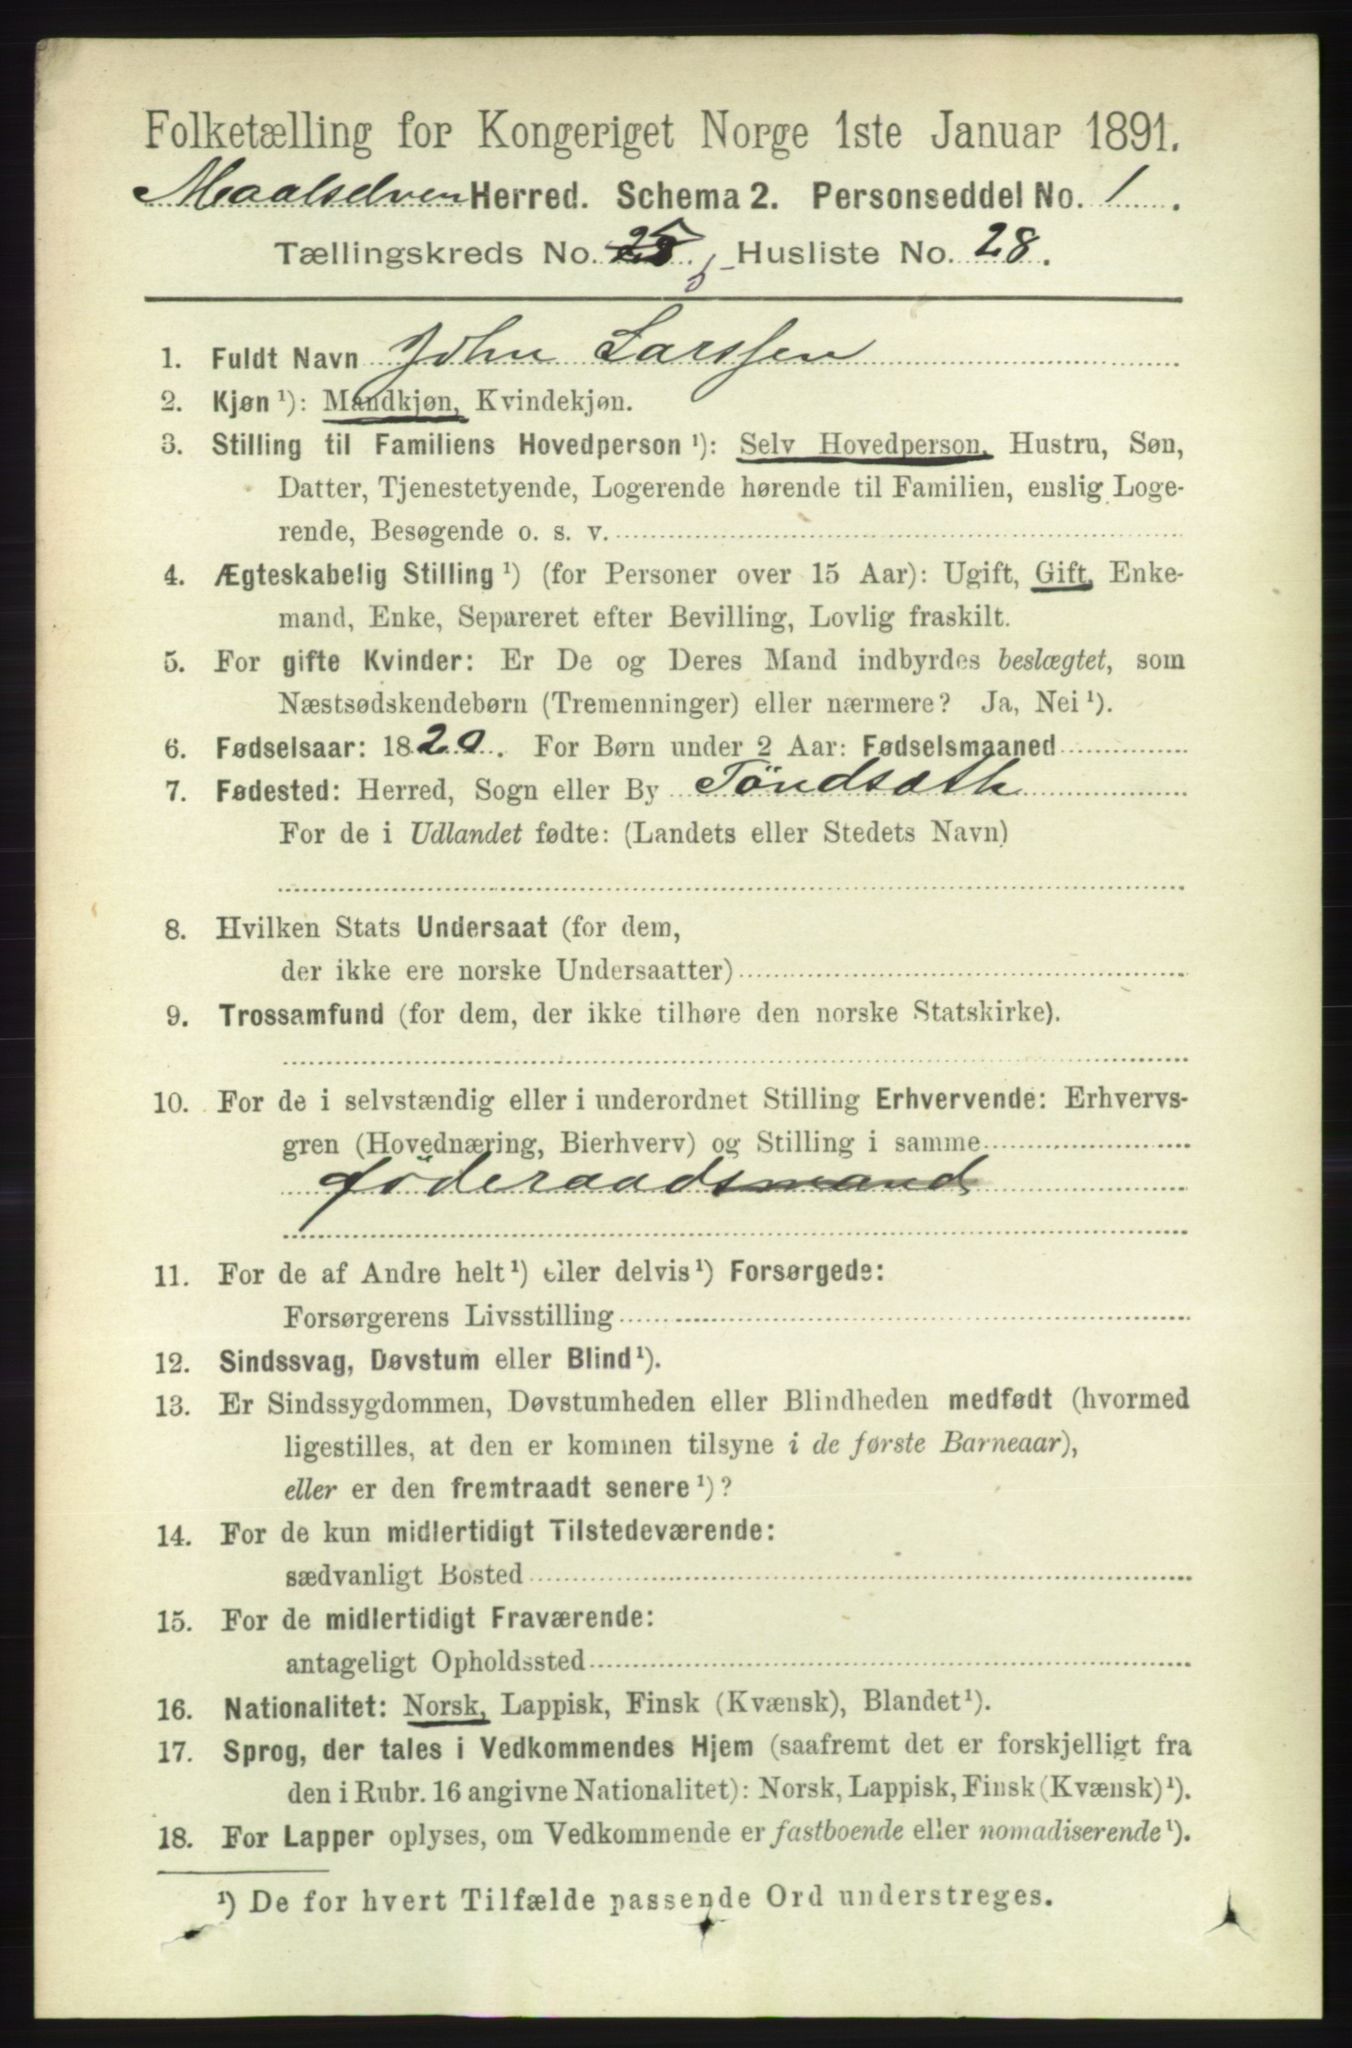 Folketælling for Kongeriget Norge 1ste Januar 1891.
Maalselven Herred. Schema 2. Personseddel No. 1.
Tællingskreds No. 5 Husliste No. 28.
1. Fuldt Navn John Larssen
2. Kjøn ¹): Mandkjøn, Kvindekjøn.
3. Stilling til Familiens Hovedperson ¹): Selv Hovedperson, Hustru, Søn,
Datter, Tjenestetyende, Logerende hørende til Familien, enslig Loge-
rende, Besøgende o. s. v.
4. Ægteskabelig Stilling ¹) (for Personer over 15 Aar): Ugift, Gift, Enke-
mand, Enke, Separeret efter Bevilling, Lovlig fraskilt.
5. For gifte Kvinder: Er De og Deres Mand indbyrdes beslægtet, som
Næstsødskendebørn (Tremenninger) eller nærmere? Ja, Nei ¹).
6. Fødselsaar: 1820. For Børn under 2 Aar: Fødselsmaaned
7. Fødested: Herred, Sogn eller By Töndsæth
For de i Udlandet fødte: (Landets eller Stedets Navn)
8. Hvilken Stats Undersaat (for dem,
der ikke ere norske Undersaatter)
9. Trossamfund (for dem, der ikke tilhøre den norske Statskirke).
10. For de i selvstændig eller i underordnet Stilling Erhvervende: Erhvervs-
gren (Hovednæring, Bierhverv) og Stilling i samme
föderaadsmand
11. For de af Andre helt ¹) eller delvis ¹) Forsørgede:
Forsørgerens Livsstilling
12. Sindssvag, Døvstum eller Blind ¹).
13. Er Sindssygdommen, Døvstumheden eller Blindheden medfødt (hvormed
ligestilles, at den er kommen tilsyne i de første Barneaar),
eller er den fremtraadt senere ¹)?
14. For de kun midlertidigt Tilstedeværende:
sædvanligt Bosted
15. For de midlertidigt Fraværende:
antageligt Opholdssted
16. Nationalitet: Norsk, Lappisk, Finsk (Kvænsk), Blandet ¹).
17. Sprog, der tales i Vedkommendes Hjem (saafremt det er forskjelligt fra
den i Rubr. 16 angivne Nationalitet): Norsk, Lappisk, Finsk (Kvænsk) ¹).
18. For Lapper oplyses, om Vedkommende er fastboende eller nomadiserende ¹).
¹) De for hvert Tilfælde passende Ord understreges.